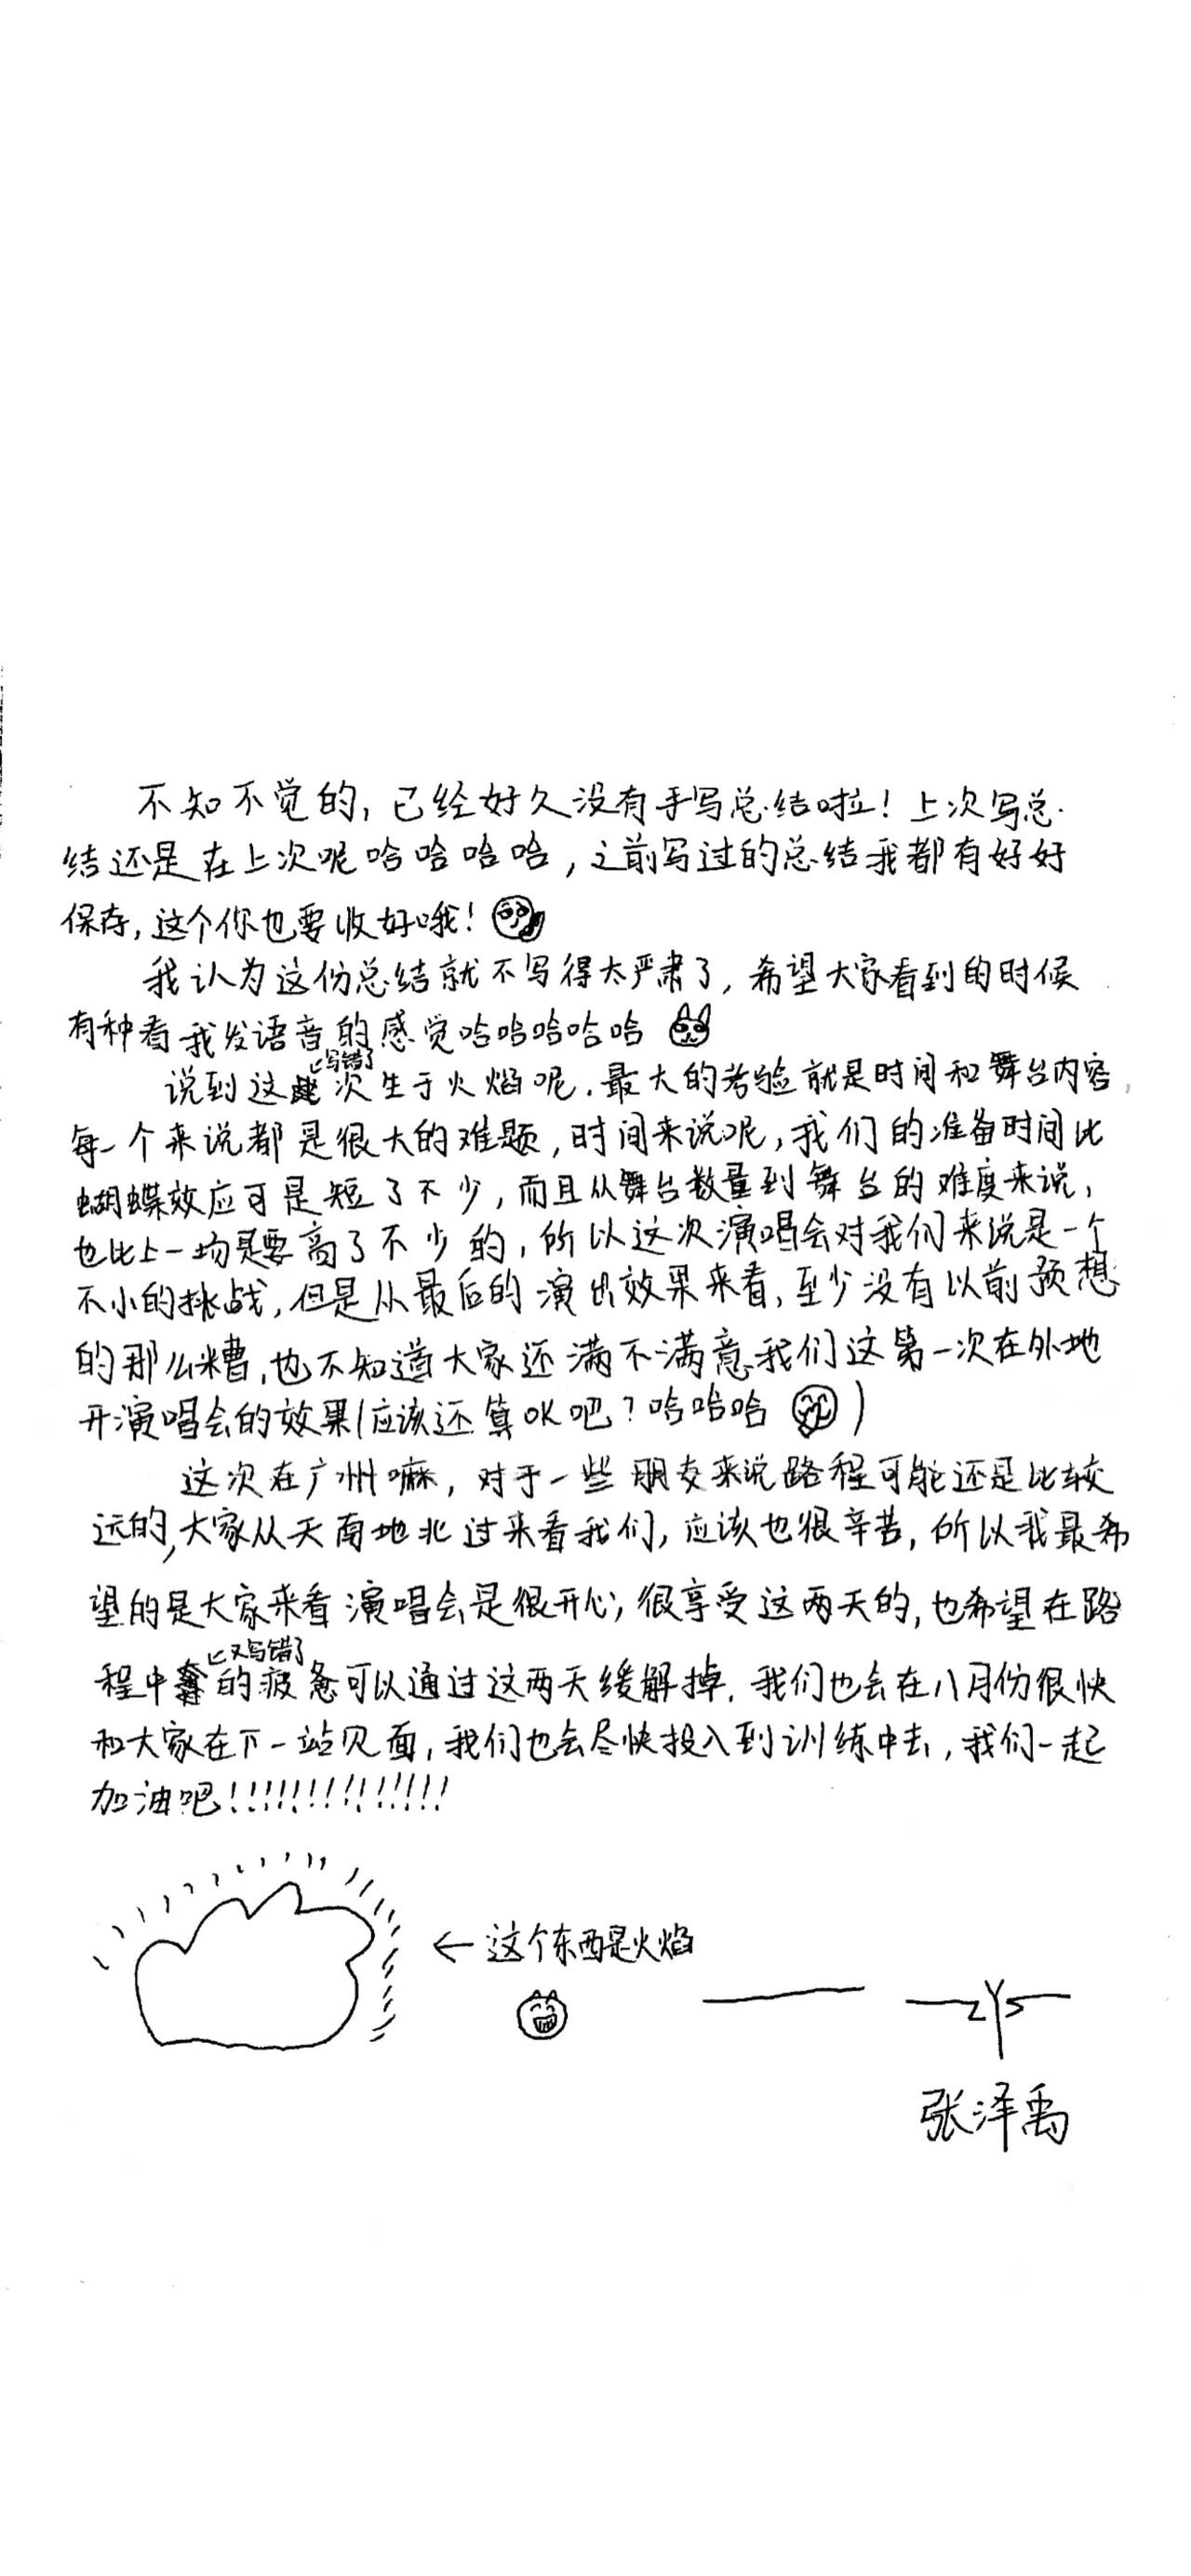 不知不觉的,已经好久没有手写总结啦!上次写总
结还是在上次呢哈哈哈哈,之前写过的总结我都有好好
保存,这个你也要收好哦!
我认为这份总结就不写得太严肃了,希望大家看到的时候
有种看我发语音的感觉哈哈哈哈哈
写错了
说到这次生于火焰呢.最大的考验就是时间和舞台内容,
每一个来说都是很大的难题,时间来说呢,我们的准备时间比
蝴蝶效应可是短了不少,而且从舞台数量到舞台的难度来说,
也比上一场是要高了不少的,所以这次演唱会对我们来说是一个
不小的挑战,但是从最后的演出效果来看,至少没有以前预想
的那么糟,也不知道大家还满不满意我们这第一次在外地
开演唱会的效果(应该还算OK吧?哈哈哈)
这次在广州嘛,对于一些朋友来说路程可能还是比较
远的,大家从天南地北过来看我们,应该也很辛苦,所以我最希
望的是大家来看演唱会是很开心,很享受这两天的,也希望在路
又写错了
程中的疲惫可以通过这两天缓解掉.我们也会在八月份很快
和大家在下一站见面,我们也会尽快投入到训练中去,我们一起
加油吧!!!!!!!!!!!!!!
←这个东西是火焰
ZYS
张泽禹